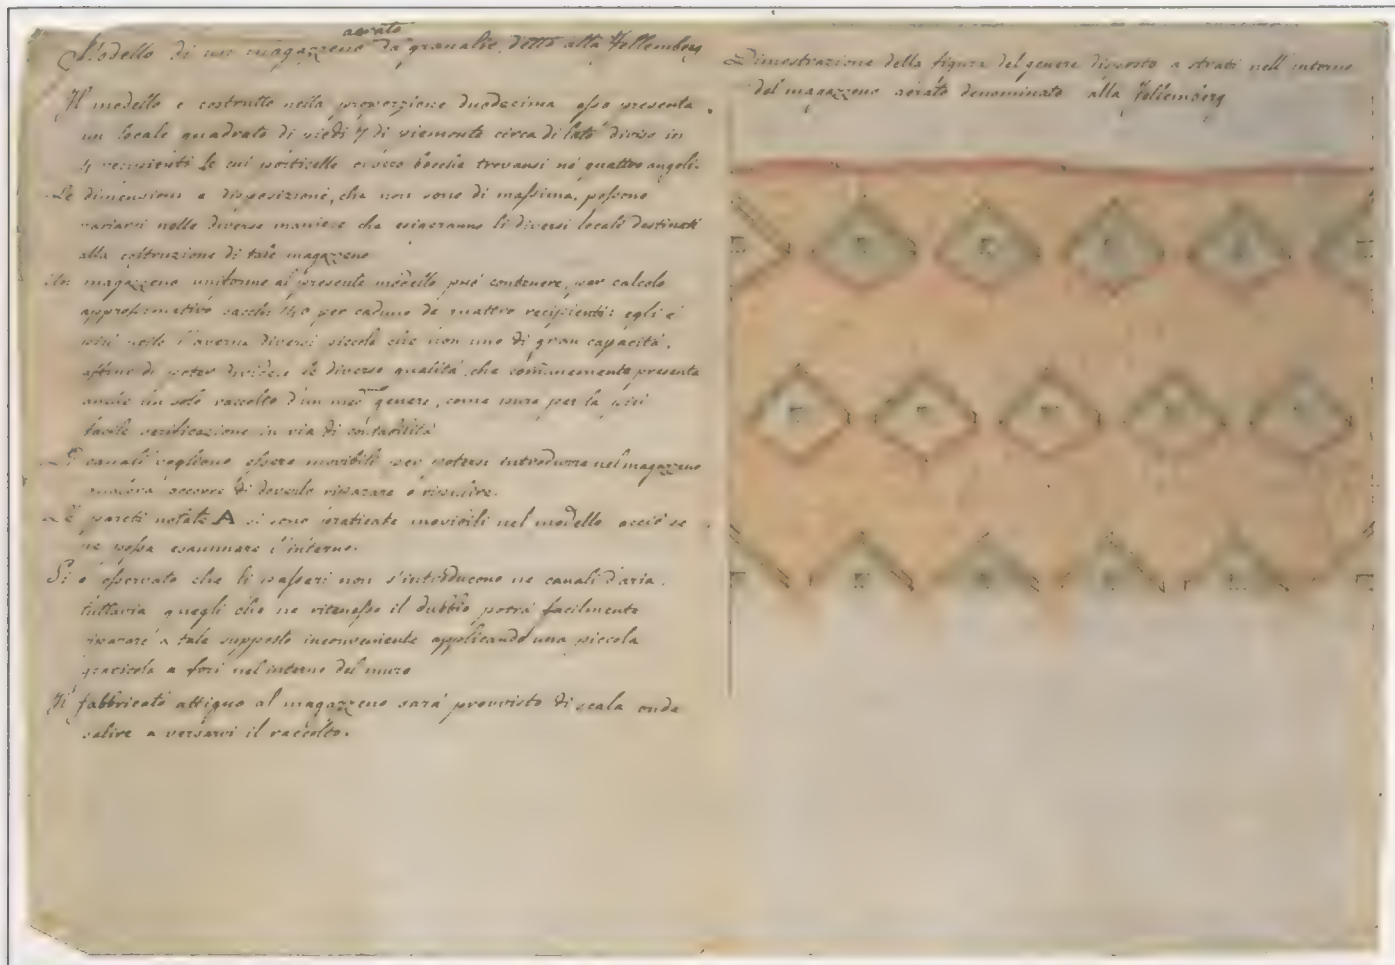 Modello di un magazzeno aerato da granalie, detto alla Fellemberg
Il modello è costrutto nella proporzione duodecima esso presenta
un locale quadrato di piedi 7 di piemonte circa di lato diviso in
4 recipienti le cui porticelle o bocche trovansi né quattro angoli.
Le dimensioni e disposizione, che non sono di massima, possono
variarsi nelle diverse maniere che esigeranno li diversi locali destinati
alla costruzione di tale magazzeno
Un magazzeno uniforme al presente modello può contenere, per calcolo
approssimativo sacchi 40 per caduno de quattro recipienti: egli è
più utile l'averne diversi piccoli che non uno di gran capacità,
affine di poter dividere le diverse qualità che comunemente presenta
anche un solo raccolto d'un med.mo genere, come pure per la più
facile verificazione in via di contabilità
Li canali vogliono essere movibili per potersi introdurre nel magazzeno
qualora occorre di doverlo riparare o ripulire.
Le pareti notate A si sono praticate movibili nel modello acciò se
ne possa esaminare l'interno.
Si è osservato che li passeri non s'introducono ne canali d'aria,
tuttavia quegli che ne ritenesse il dubbio potrà facilmente
riparare a tale supposto inconveniente applicando una piccola
graticola a fori nel interno del muro
Il fabbricato attiguo al magazzeno sarà provvisto di scala onde
salire a versarvi il raccolto.
Dimostrazione della figura del genere disposto a strati nell interno
del magazzeno aerato denominato alla Fellemberg